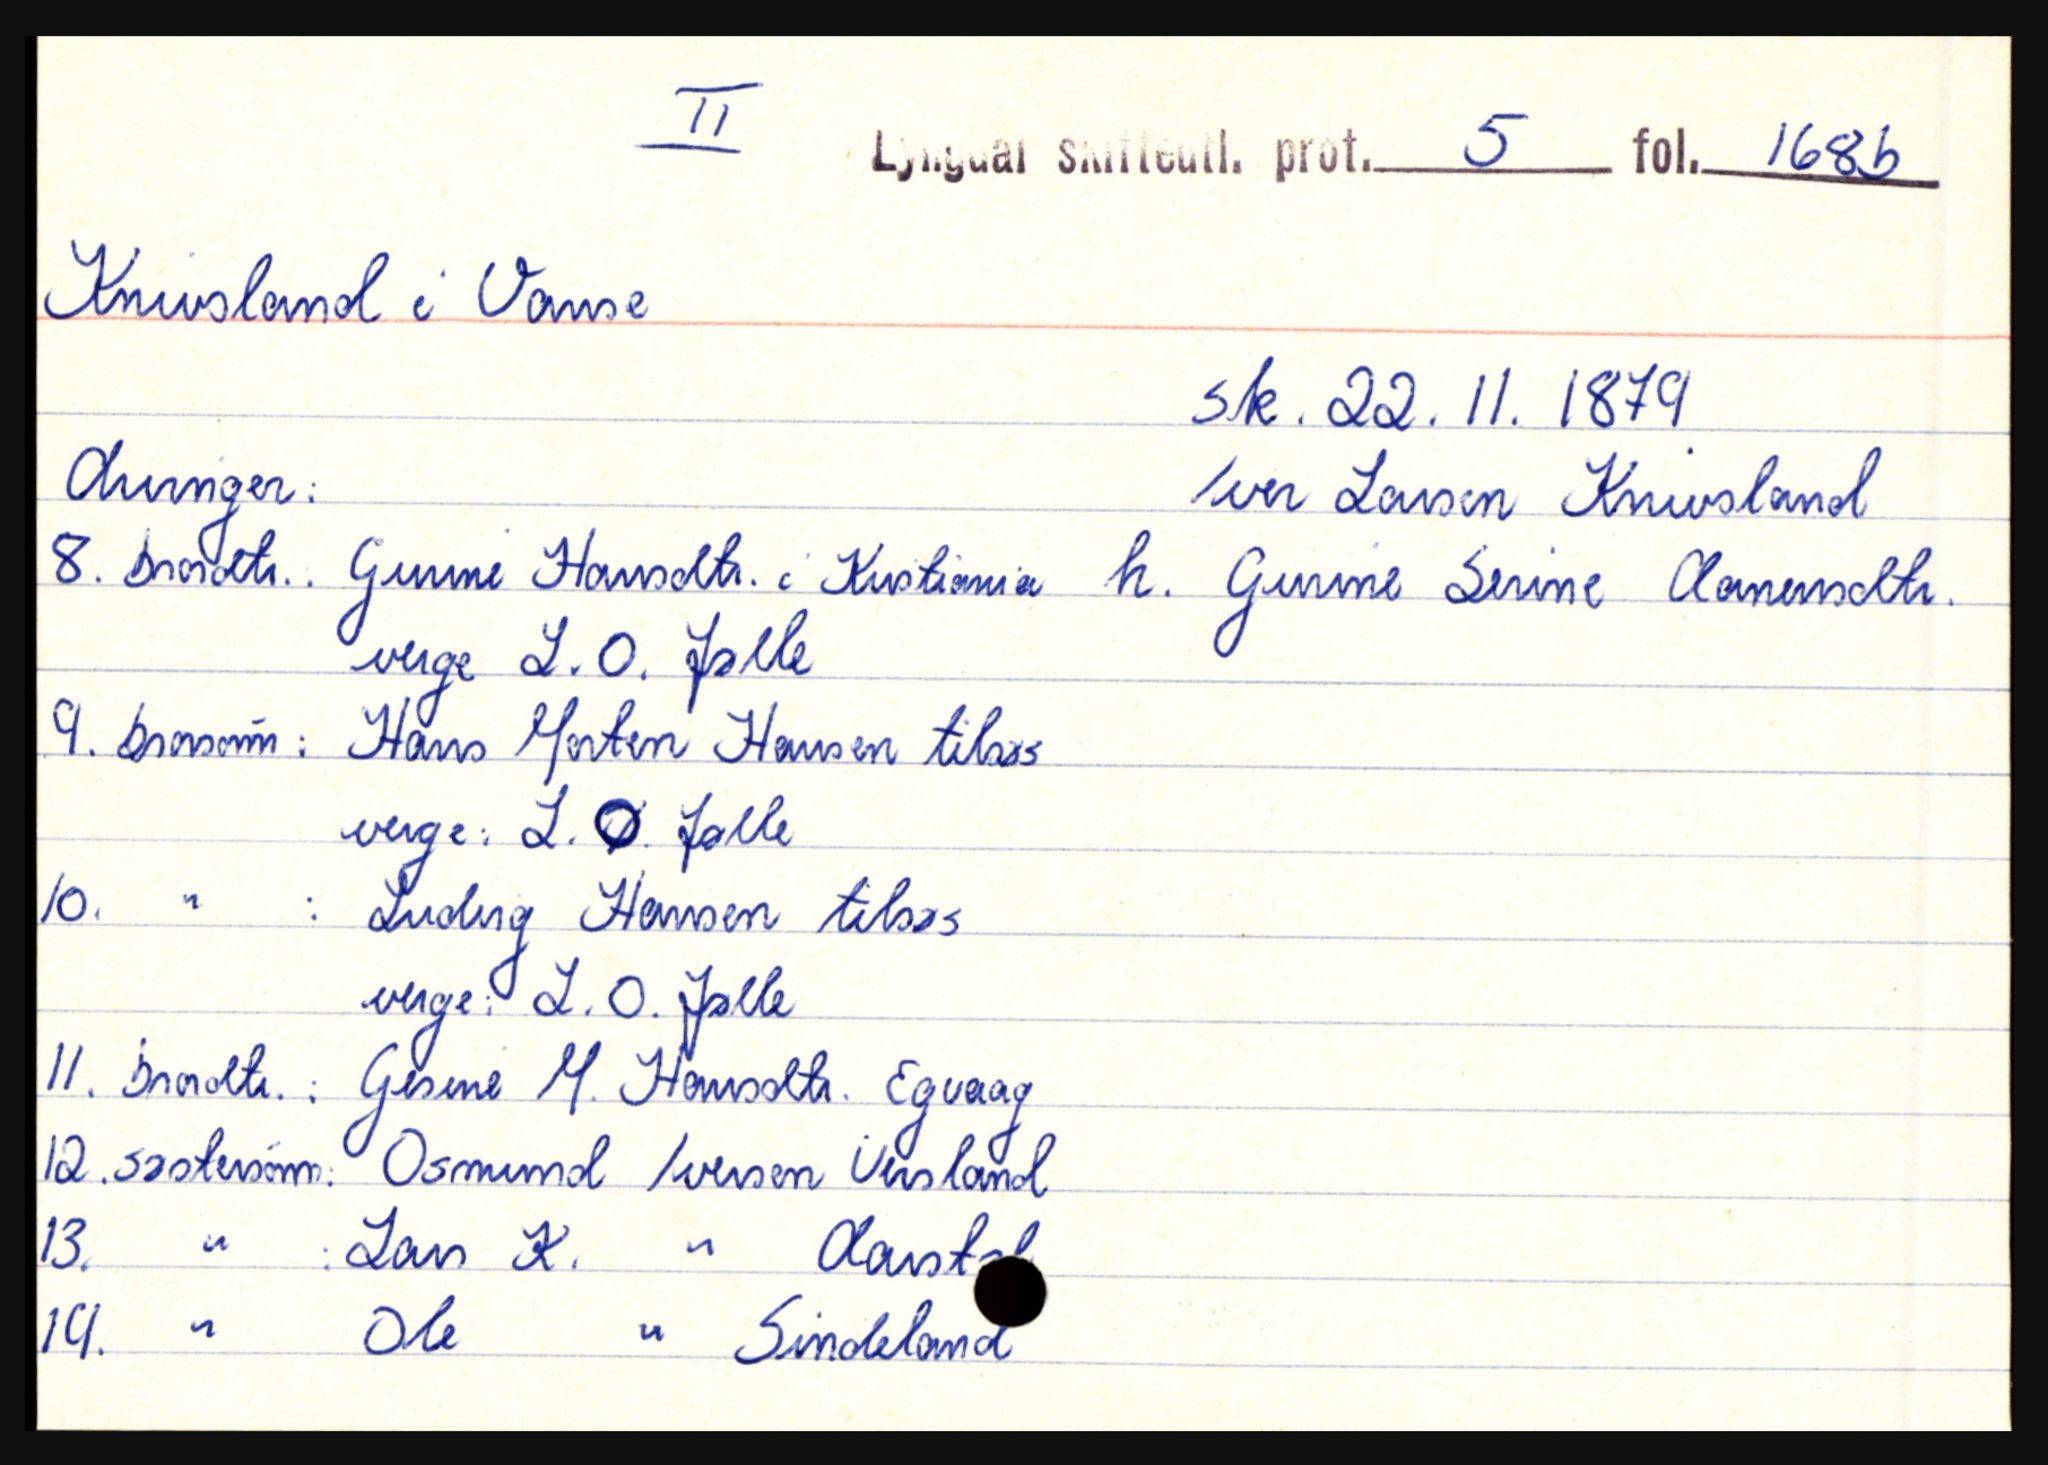 II
Lyngdal skifteutl. prot. 5 fol. 168b
Knivsland i Vanse
sk. 22. 11. 1879
Arvinger: Iver Larsen Knivsland
8. brordtr.: Gurine Hansdtr. i Kristiania h. Gurine Serine Aanensdtr.
verge L. O. Jølle
9. brorsønn: Hans Morten Hansen tilsøs
verge: L. O. Jølle
10. " : Ludvig Hansen tilsøs
verge: L. O. Jølle
11. brordtr.: Gesine M. Hansdtr. Egvaag
12. søstersønn: Osmund Iversen Ursland
13. " : Lars K. "
14. " Ole " Sindeland